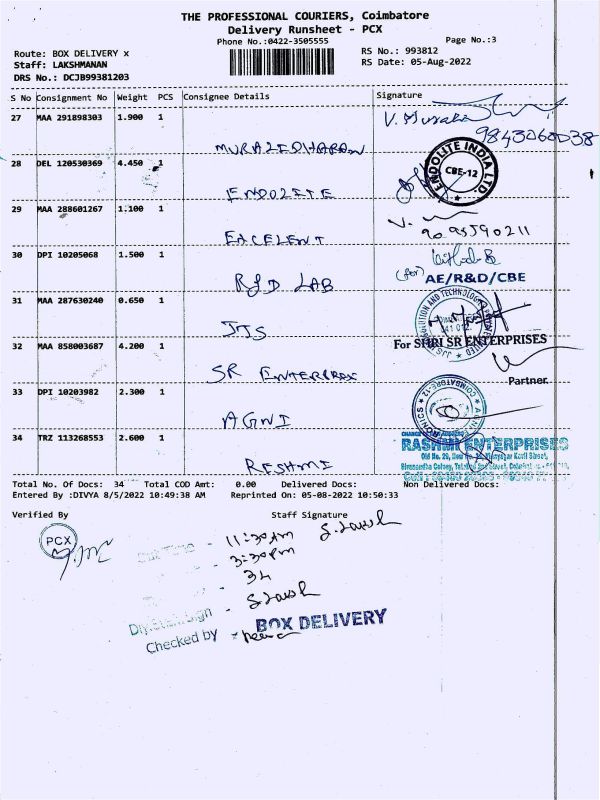 THE PROFESSIONAL COURIERS, Coimbatore
Delivery Runsheet - PCX
Phone No.:0422-3505555
Page No.:3
Route: BOX DELIVERY x
RS No.: 993812
Staff: LAKSHMANAN
RS Date: 05-Aug-2022
DRS No.: DCJB99381203
S No Consignment No Weight PCS Consignee Details Signature
27 MAA 291898303 1.900 1
9843060038
28 DEL 120530369 4.450 1
ENDOLITE INDIA LTD. CBE-12
ENDOLITE
29 MAA 288601267 1.100 1
EXCELENT
30 DPI 10205068 1.500 1
R&D LAB
(for) AE/R&D/CBE
31 MAA 287630240 0.650 1
JTS
For SHRI SR ENTERPRISES
32 MAA 858003687 4.200 1
SR
Partner.
33 DPI 10203982 2.300 1
AGNI
34 TRZ 113268553 2.600 1
RASHMI ENTERPRISES
RESHMI
Total No. Of Docs: 34 Total COD Amt: 0.00 Delivered Docs: Non Delivered Docs:
Entered By :DIVYA 8/5/2022 10:49:38 AM Reprinted On: 05-08-2022 10:50:33
Verified By Staff Signature
PCX
11:30Am
3:30pm
34
BOX DELIVERY
Checked by